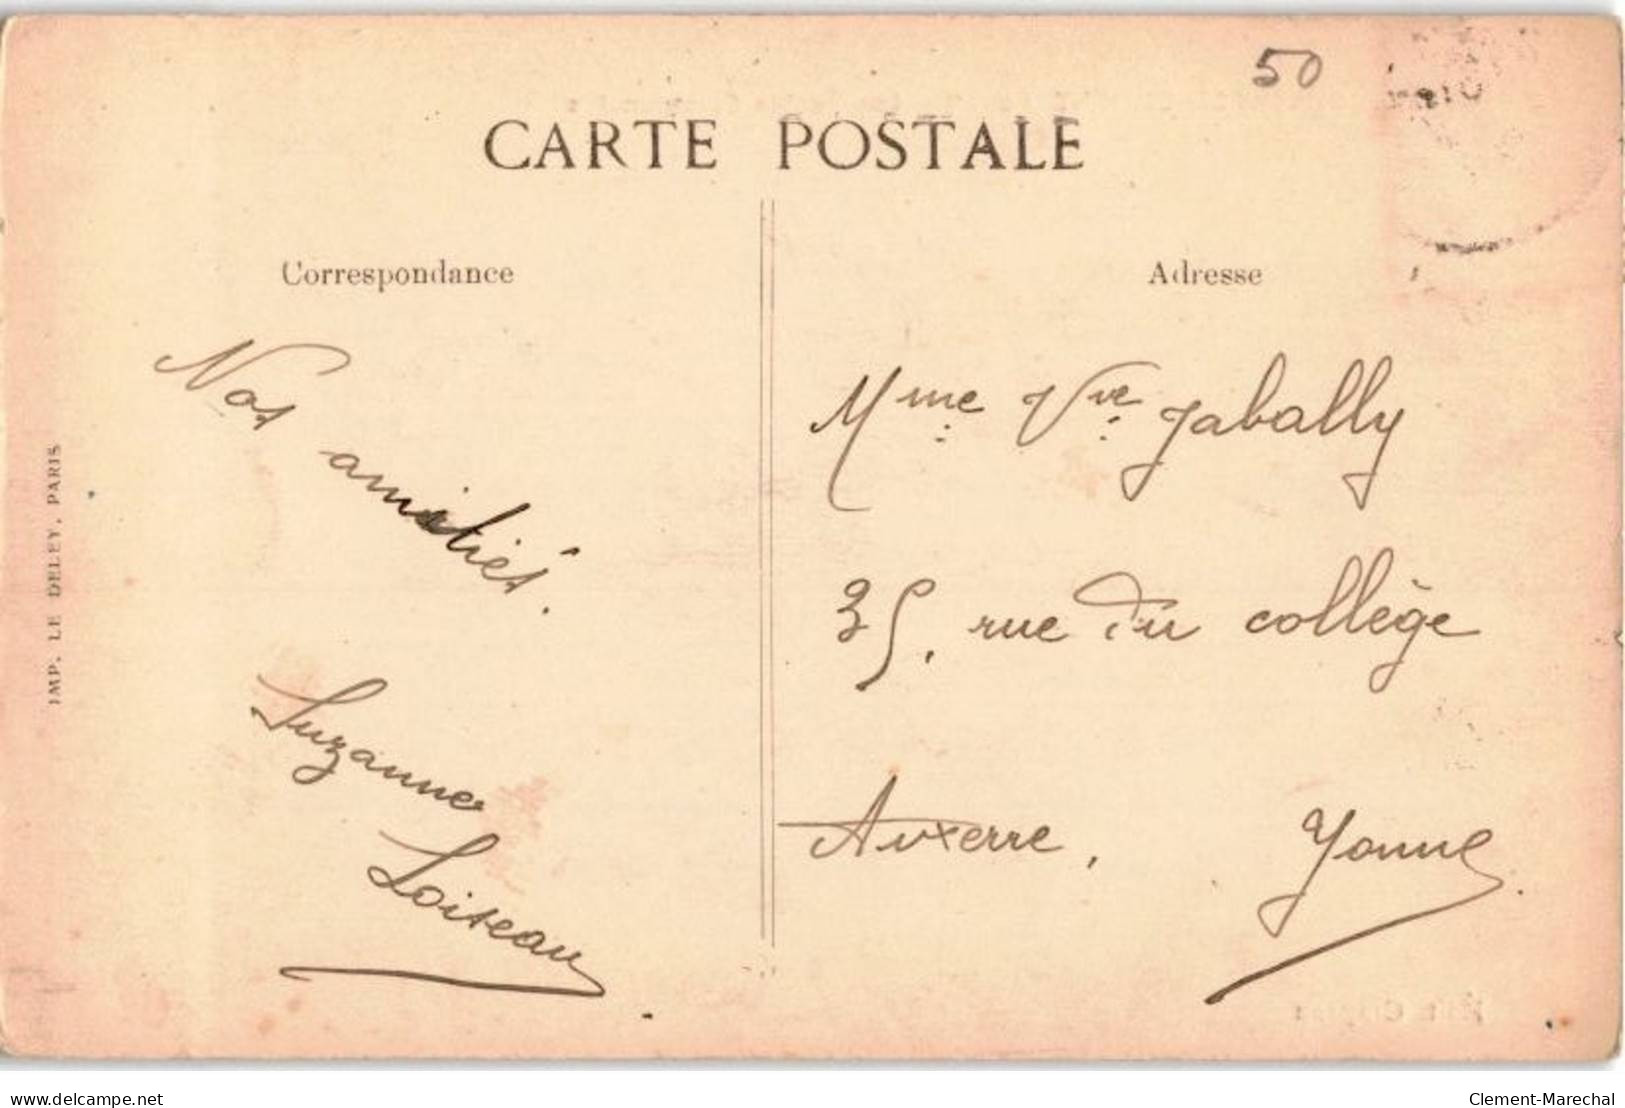 50
CARTE POSTALE
Correspondance
Adresse
Nos
amitiés.
Suzanne
Loiseau
Mme Vve Jabally
35, rue du collège
Auxerre, Yonne.
IMP. LE DELEY, PARIS
delcampe.net
Clement-Marechal